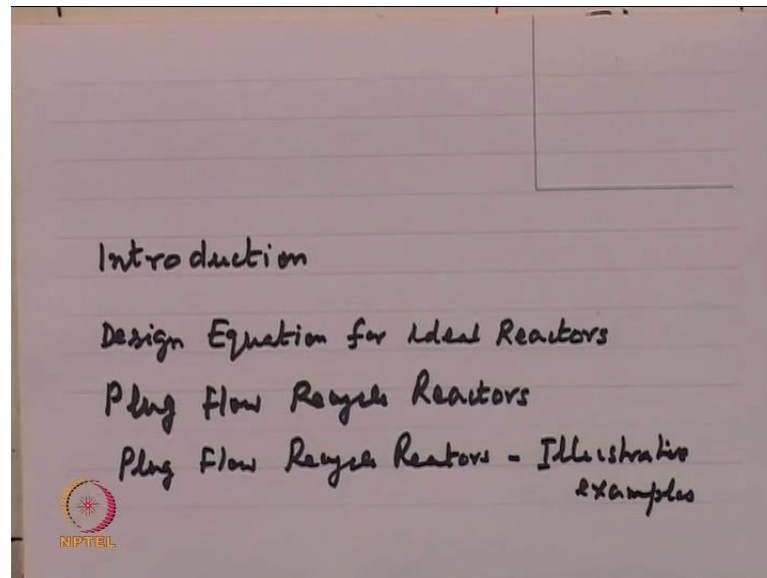 Introduction
Design Equation for ideal Reactors
Plug Flow Recycle Reactors
Plug Flow Recycle Reactors - Illustrative
examples
NPTEL